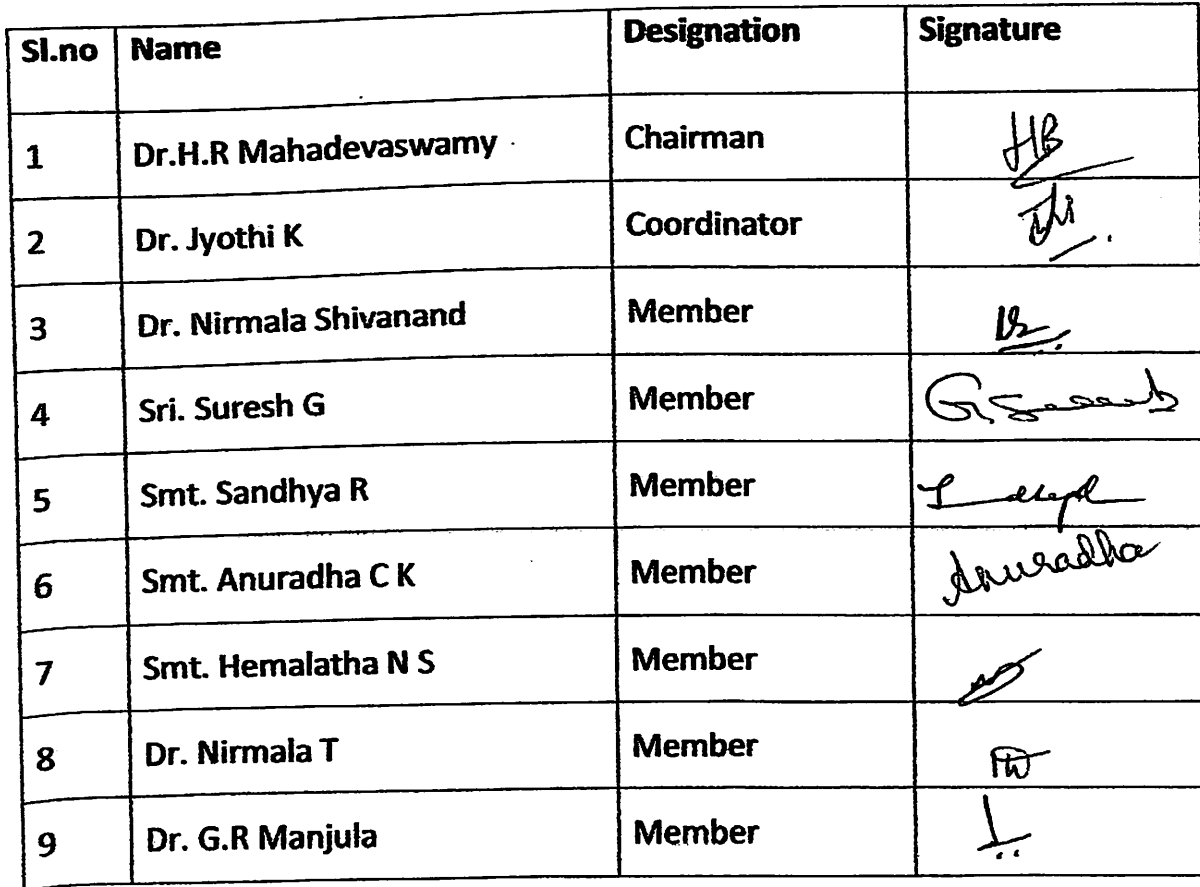 Sl.no Name Designation Signature
1 Dr.H.R Mahadevaswamy Chairman
2 Dr. Jyothi K Coordinator
3 Dr. Nirmala Shivanand Member
4 Sri. Suresh G Member
5 Smt. Sandhya R Member
6 Smt. Anuradha C K Member Anuradha
7 Smt. Hemalatha N S Member
8 Dr. Nirmala T Member
9 Dr. G.R Manjula Member